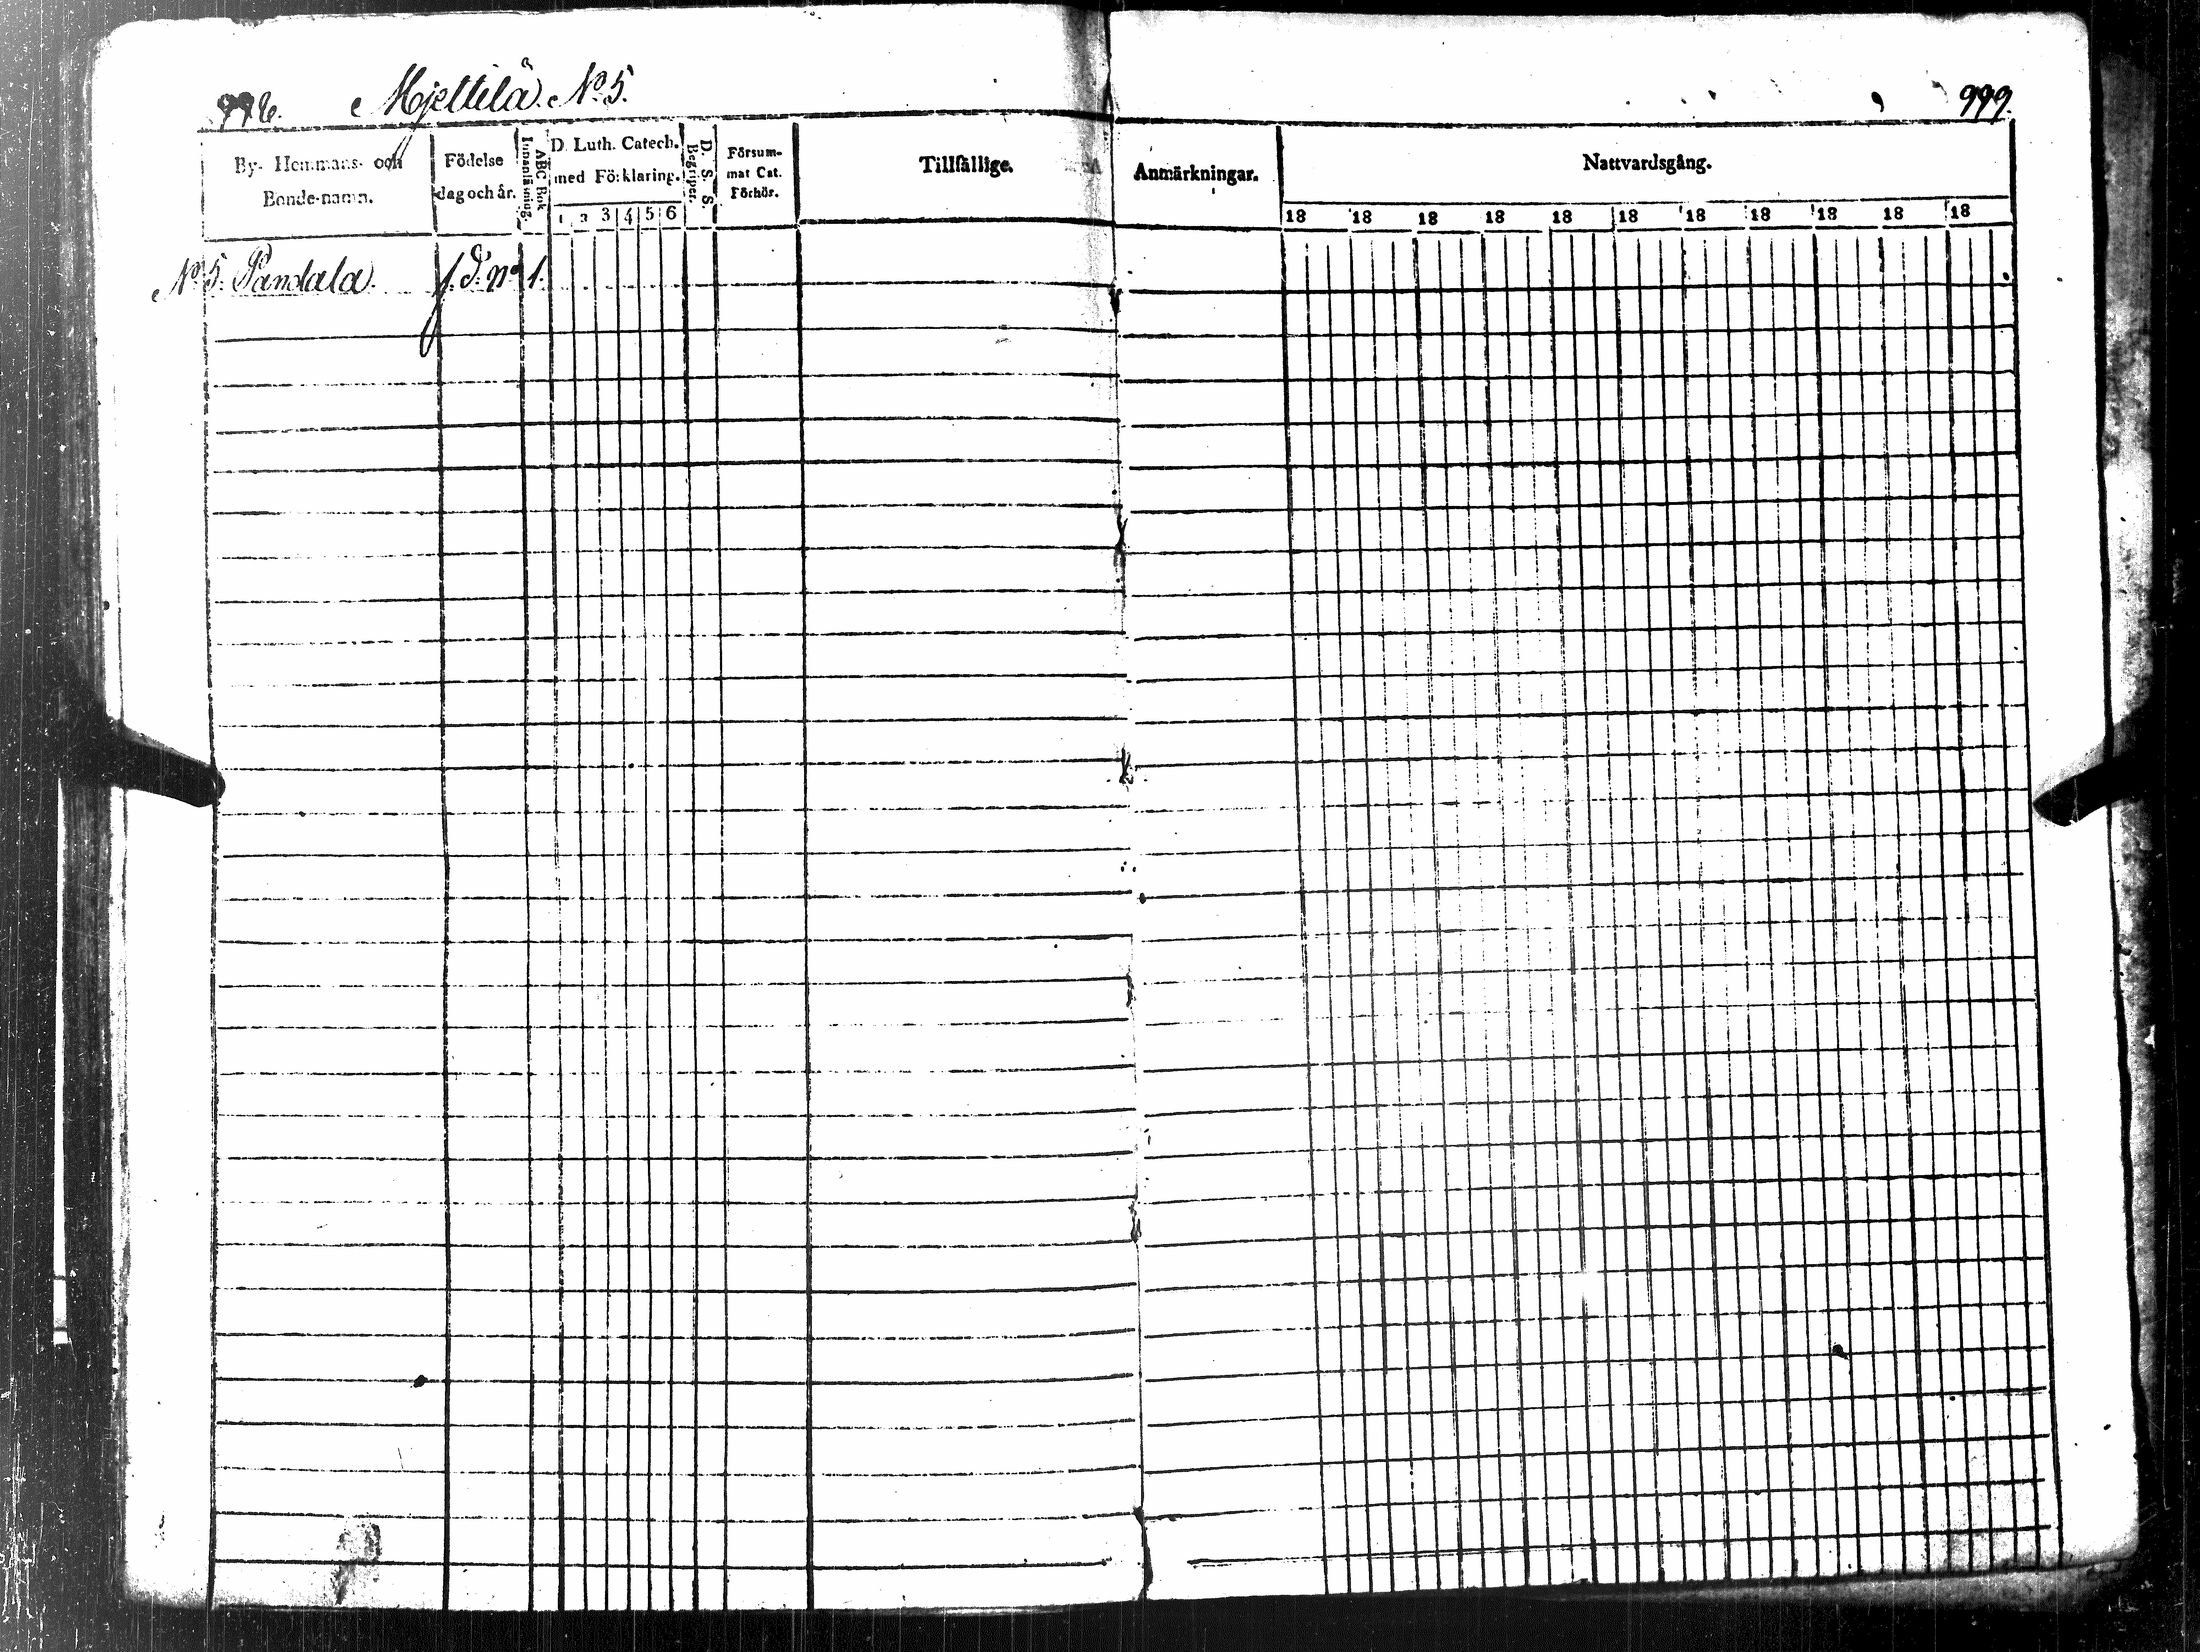 998. Mjettilä. No. 5.
999.
By- Hemmans- och Bonde-namn.
Födelse dag och år.
Innanläsning.
ABC Bok
D. Luth. Catech. med Förklaring.
1 2 3 4 5 6
D. S. S. Begriper.
Försummat Cat. Förhör.
Tillfällige.
Anmärkningar.
Nattvardsgång.
18 18 18 18 18 18 18 18 18 18 18
No. 5. Pandala. 1.